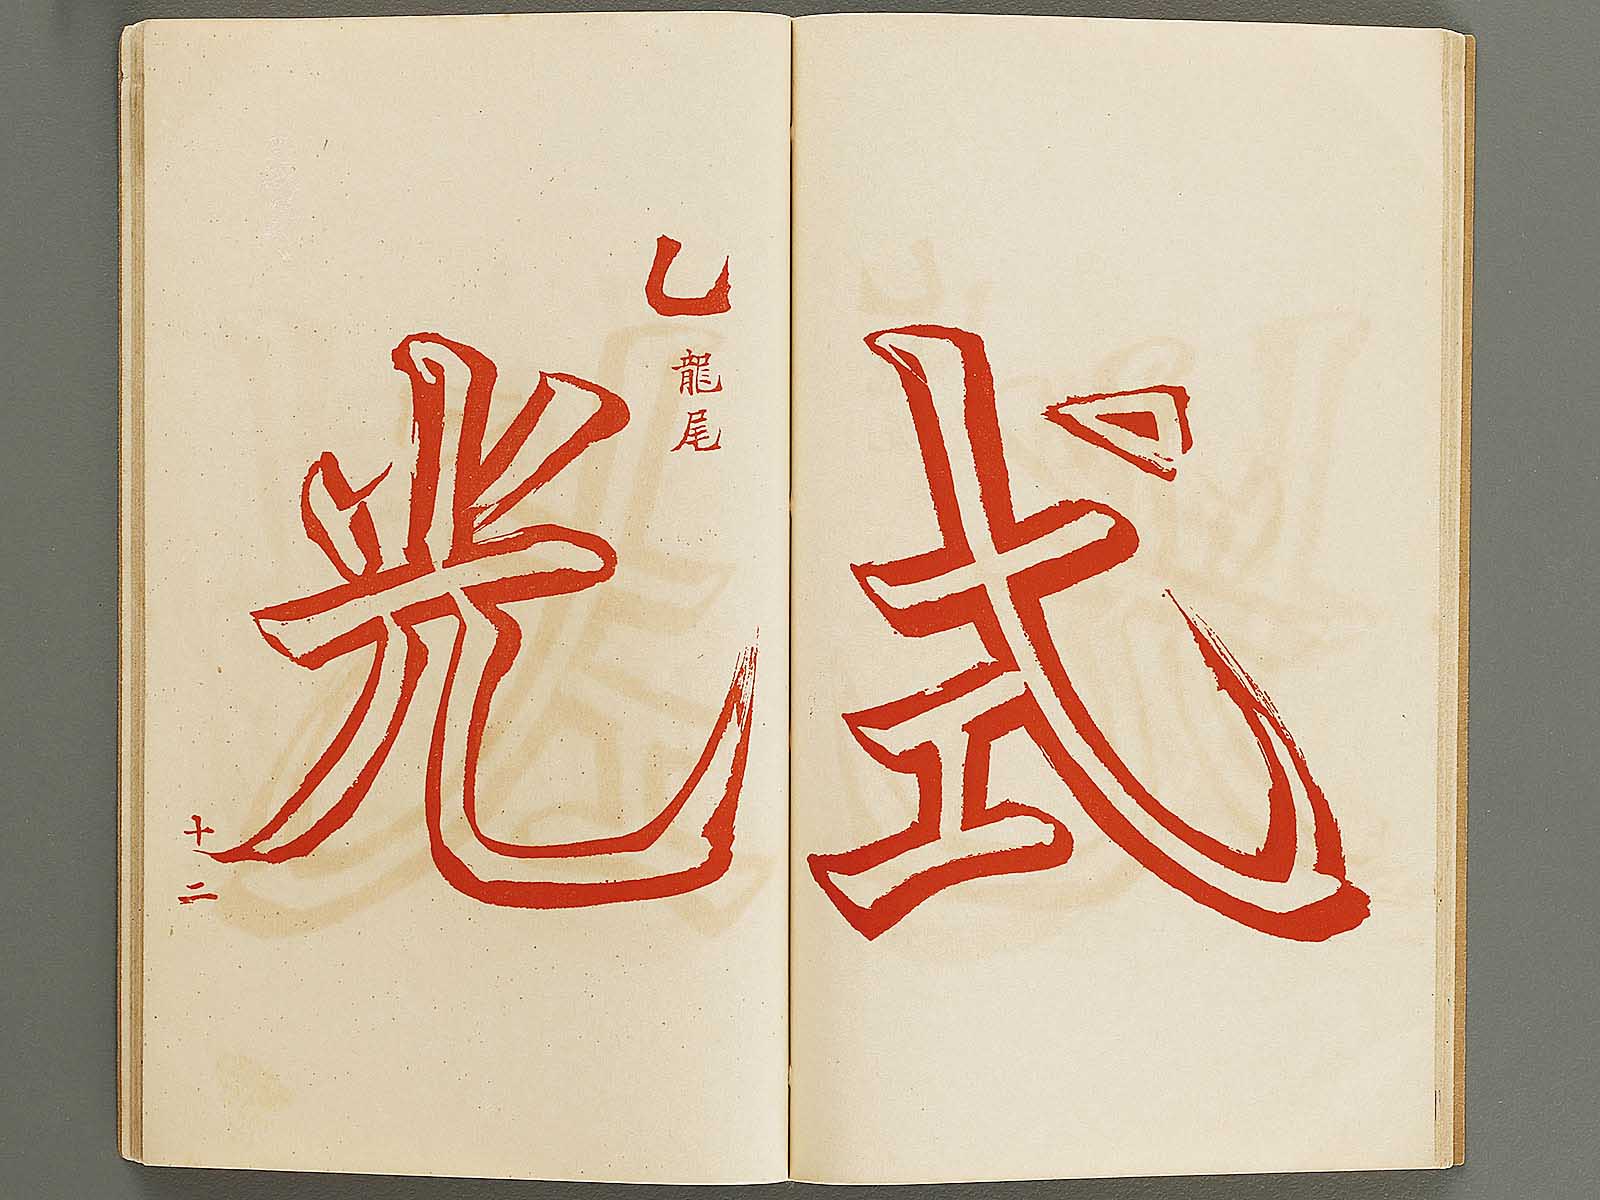 式
乚
龍尾
光
十二